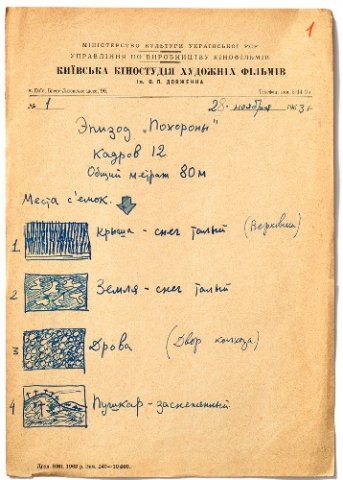 1
МІНІСТЕРСТВО КУЛЬТУРИ УКРАЇНСЬКОЇ РСР
УПРАВЛІННЯ ПО ВИРОБНИЦТВУ КІНОФІЛЬМІВ
КИЇВСЬКА КІНОСТУДІЯ ХУДОЖНІХ ФІЛЬМІВ
ім. О. П. ДОВЖЕНКА
м. Київ, Брест-Литовське шосе,
Телефон
№ 1
28 ноября 1963 г
Эпизод „Похороны"
Кадров 12
Общий метраж 80 м
Места с'емок.
1 Крыша - снег талый (Верховина)
2 Земля - снег талый
3 Дрова (Двор колхоза)
4 Пушкар - заснеженный.